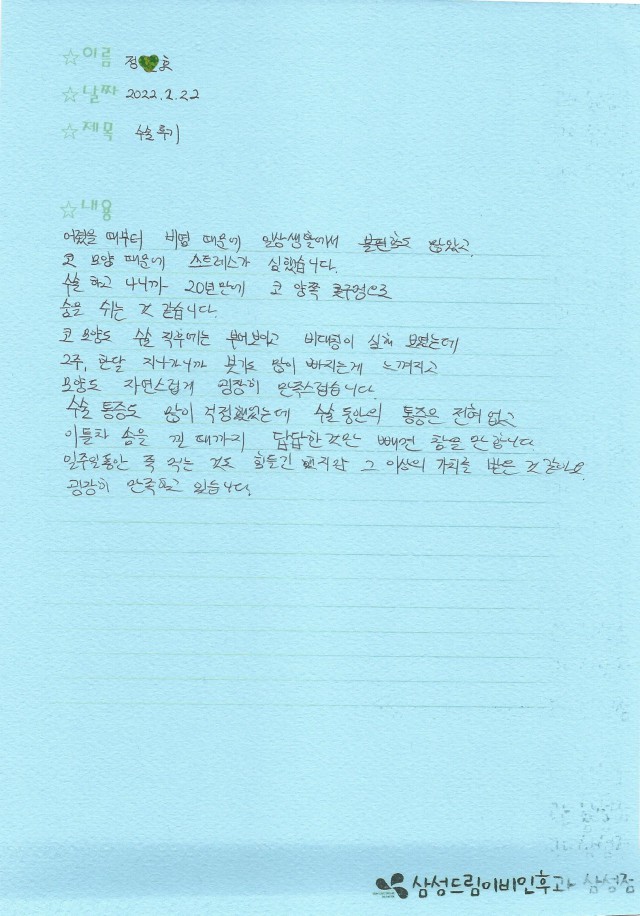 ☆이름 정 호
☆날짜 2022.2.22
☆제목 수술후기
☆내용
어렸을 때부터 비염 때문에 일상생활에서 불편함도 많았고
코 모양 때문에 스트레스가 심했습니다.
수술 하고 나니까 20년만에 코 양쪽 콧구멍으로
숨을 쉬는 것 같습니다.
코 모양도 수술 직후에는 부어보이고 비대칭이 심해 보였는데
2주, 한달 지나가니까 붓기도 많이 빠지는게 느껴지고
모양도 자연스럽게 굉장히 만족스럽습니다.
수술 통증도 많이 걱정했었는데 수술 동안의 통증은 전혀 없고
이틀차 솜을 낀 때까지 답답한것만 빼면 참을만 합니다
일주일동안 죽 먹는 것도 힘들긴 했지만 그 이상의 가치를 받은 것 같아요.
굉장히 만족하고 있습니다.
삼성드림이비인후과 삼성점